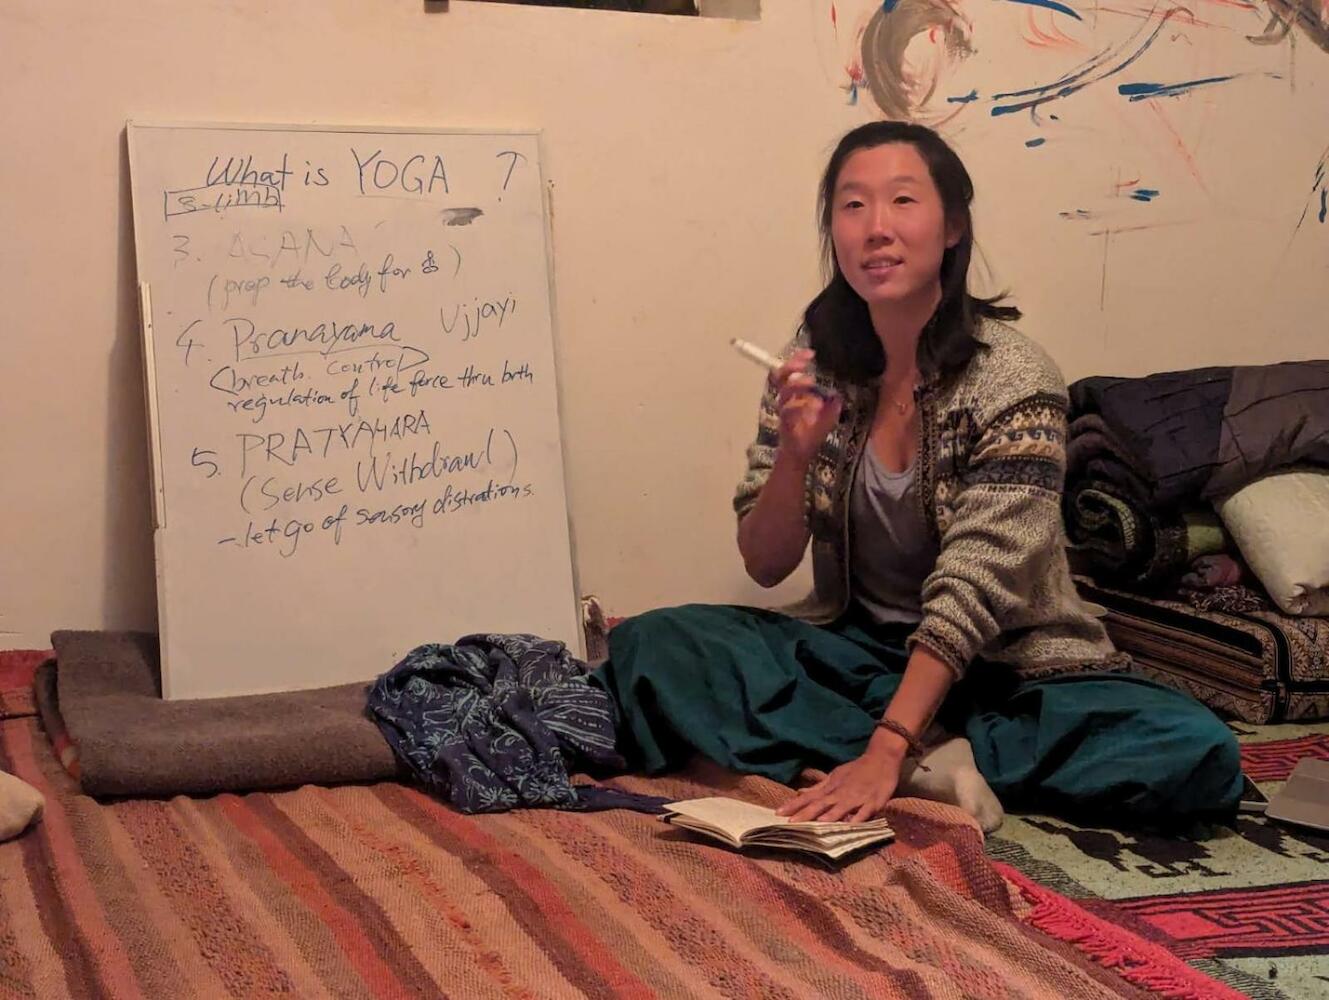 What is YOGA ?
8-limb
3. ASANA
(prep the body for &)
4. Pranayama Ujjayi
(breath control)
regulation of life force thru brth
5. PRATYAHARA
(Sense Withdrawl)
- let go of sensory distrations.